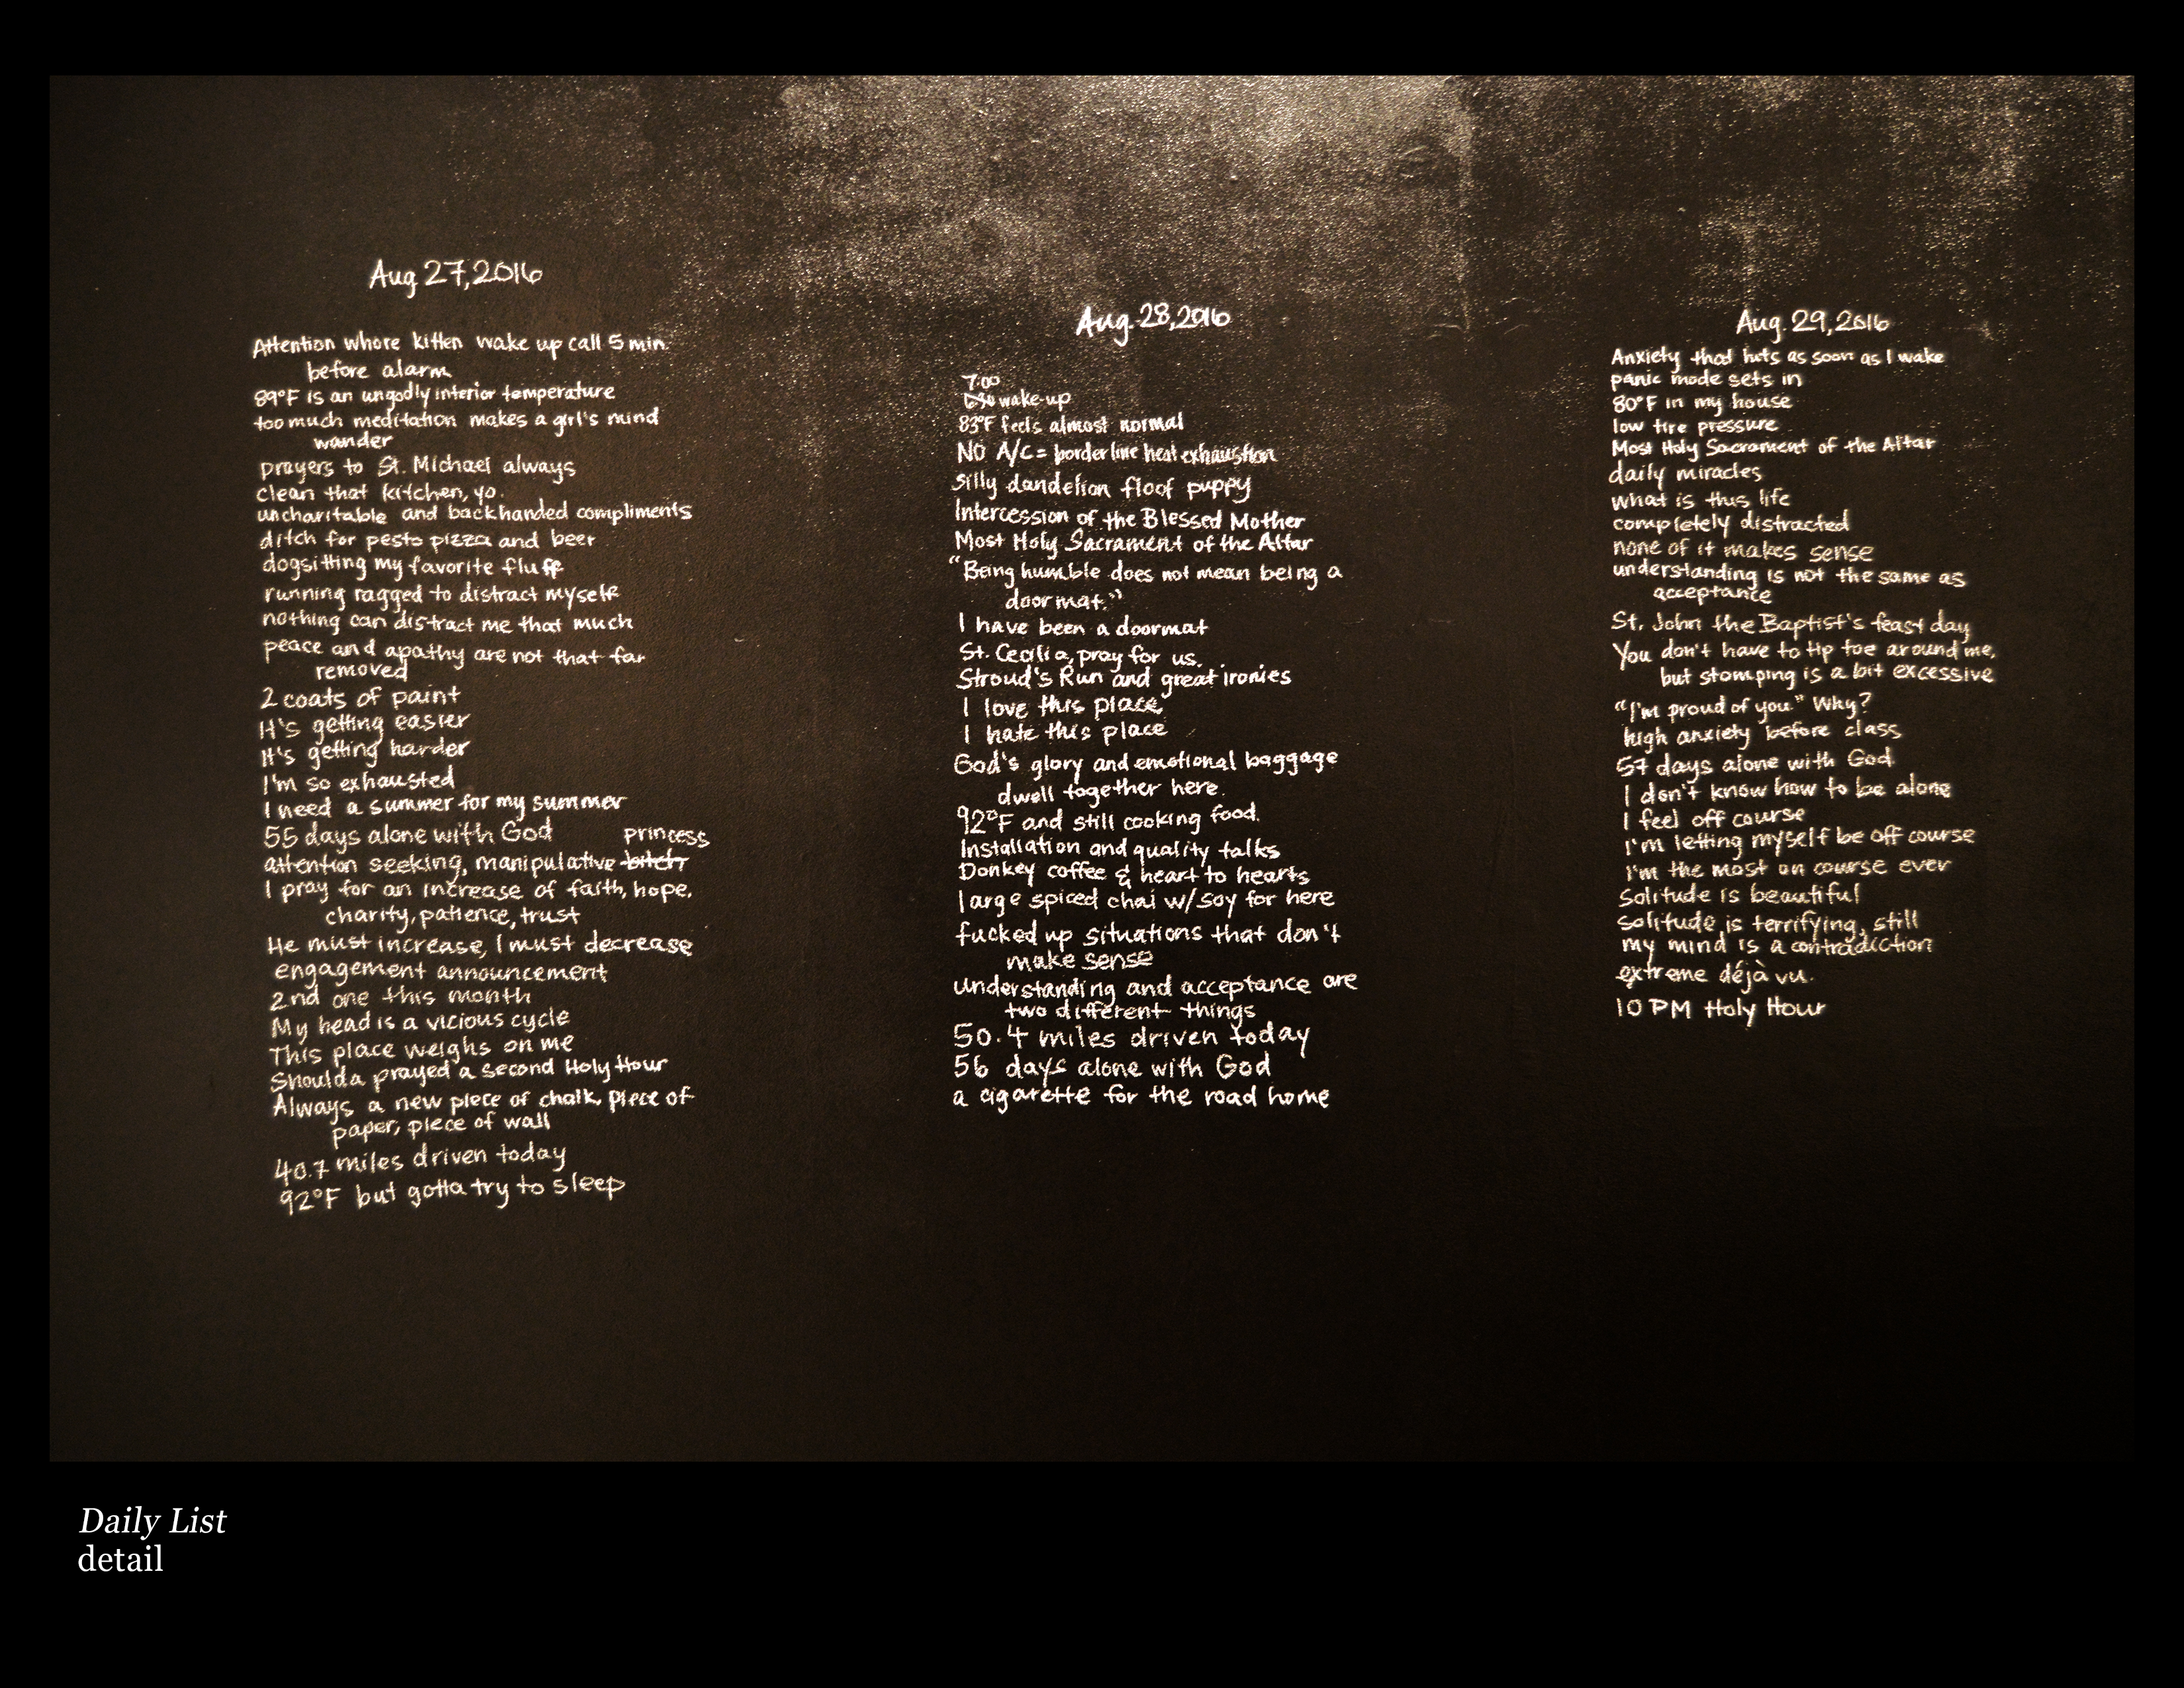 Aug 27, 2016
Attention whore kitten wake up call 5 min.
before alarm
89°F is an ungodly interior temperature
too much meditation makes a girl's mind
wander
prayers to St. Michael always
clean that kitchen, yo.
uncharitable and backhanded compliments
ditch for pesto pizza and beer
dogsitting my favorite fluff
running ragged to distract myself
nothing can distract me that much
peace and apathy are not that far
removed
2 coats of paint
It's getting easier
It's getting harder
I'm so exhausted
I need a summer for my summer
55 days alone with God
princess
attention seeking, manipulative bitch
I pray for an increase of faith, hope,
charity, patience, trust
He must increase, I must decrease
engagement announcement
2nd one this month
My head is a vicious cycle
This place weighs on me
Shoulda prayed a second Holy Hour
Always a new piece of chalk, piece of
paper, piece of wall
40.7 miles driven today
92°F but gotta try to sleep
Aug. 28, 2016
7:00
6:30 wake-up
83°F feels almost normal
NO A/C = borderline heat exhaustion
silly dandelion floof puppy
Intercession of the Blessed Mother
Most Holy Sacrament of the Altar
"Being humble does not mean being a
doormat."
I have been a doormat
St. Cecilia, pray for us.
Stroud's Run and great ironies
I love this place,
I hate this place
God's glory and emotional baggage
dwell together here.
92°F and still cooking food.
Installation and quality talks
Donkey coffee & heart to hearts
large spiced chai w/soy for here
fucked up situations that don't
make sense
understanding and acceptance are
two different things
50.4 miles driven today
56 days alone with God
a cigarette for the road home
Aug. 29, 2016
Anxiety that hits as soon as I wake
panic mode sets in
80°F in my house
low tire pressure
Most Holy Sacrament of the Altar
daily miracles
what is this life
completely distracted
none of it makes sense
understanding is not the same as
acceptance
St. John the Baptist's feast day
You don't have to tip toe around me,
but stomping is a bit excessive
"I'm proud of you." Why?
high anxiety before class
57 days alone with God
I don't know how to be alone
I feel off course
I'm letting myself be off course
I'm the most on course ever
Solitude is beautiful
solitude is terrifying, still
my mind is a contradiction
extreme déjà vu.
10 PM Holy Hour
Daily List
detail